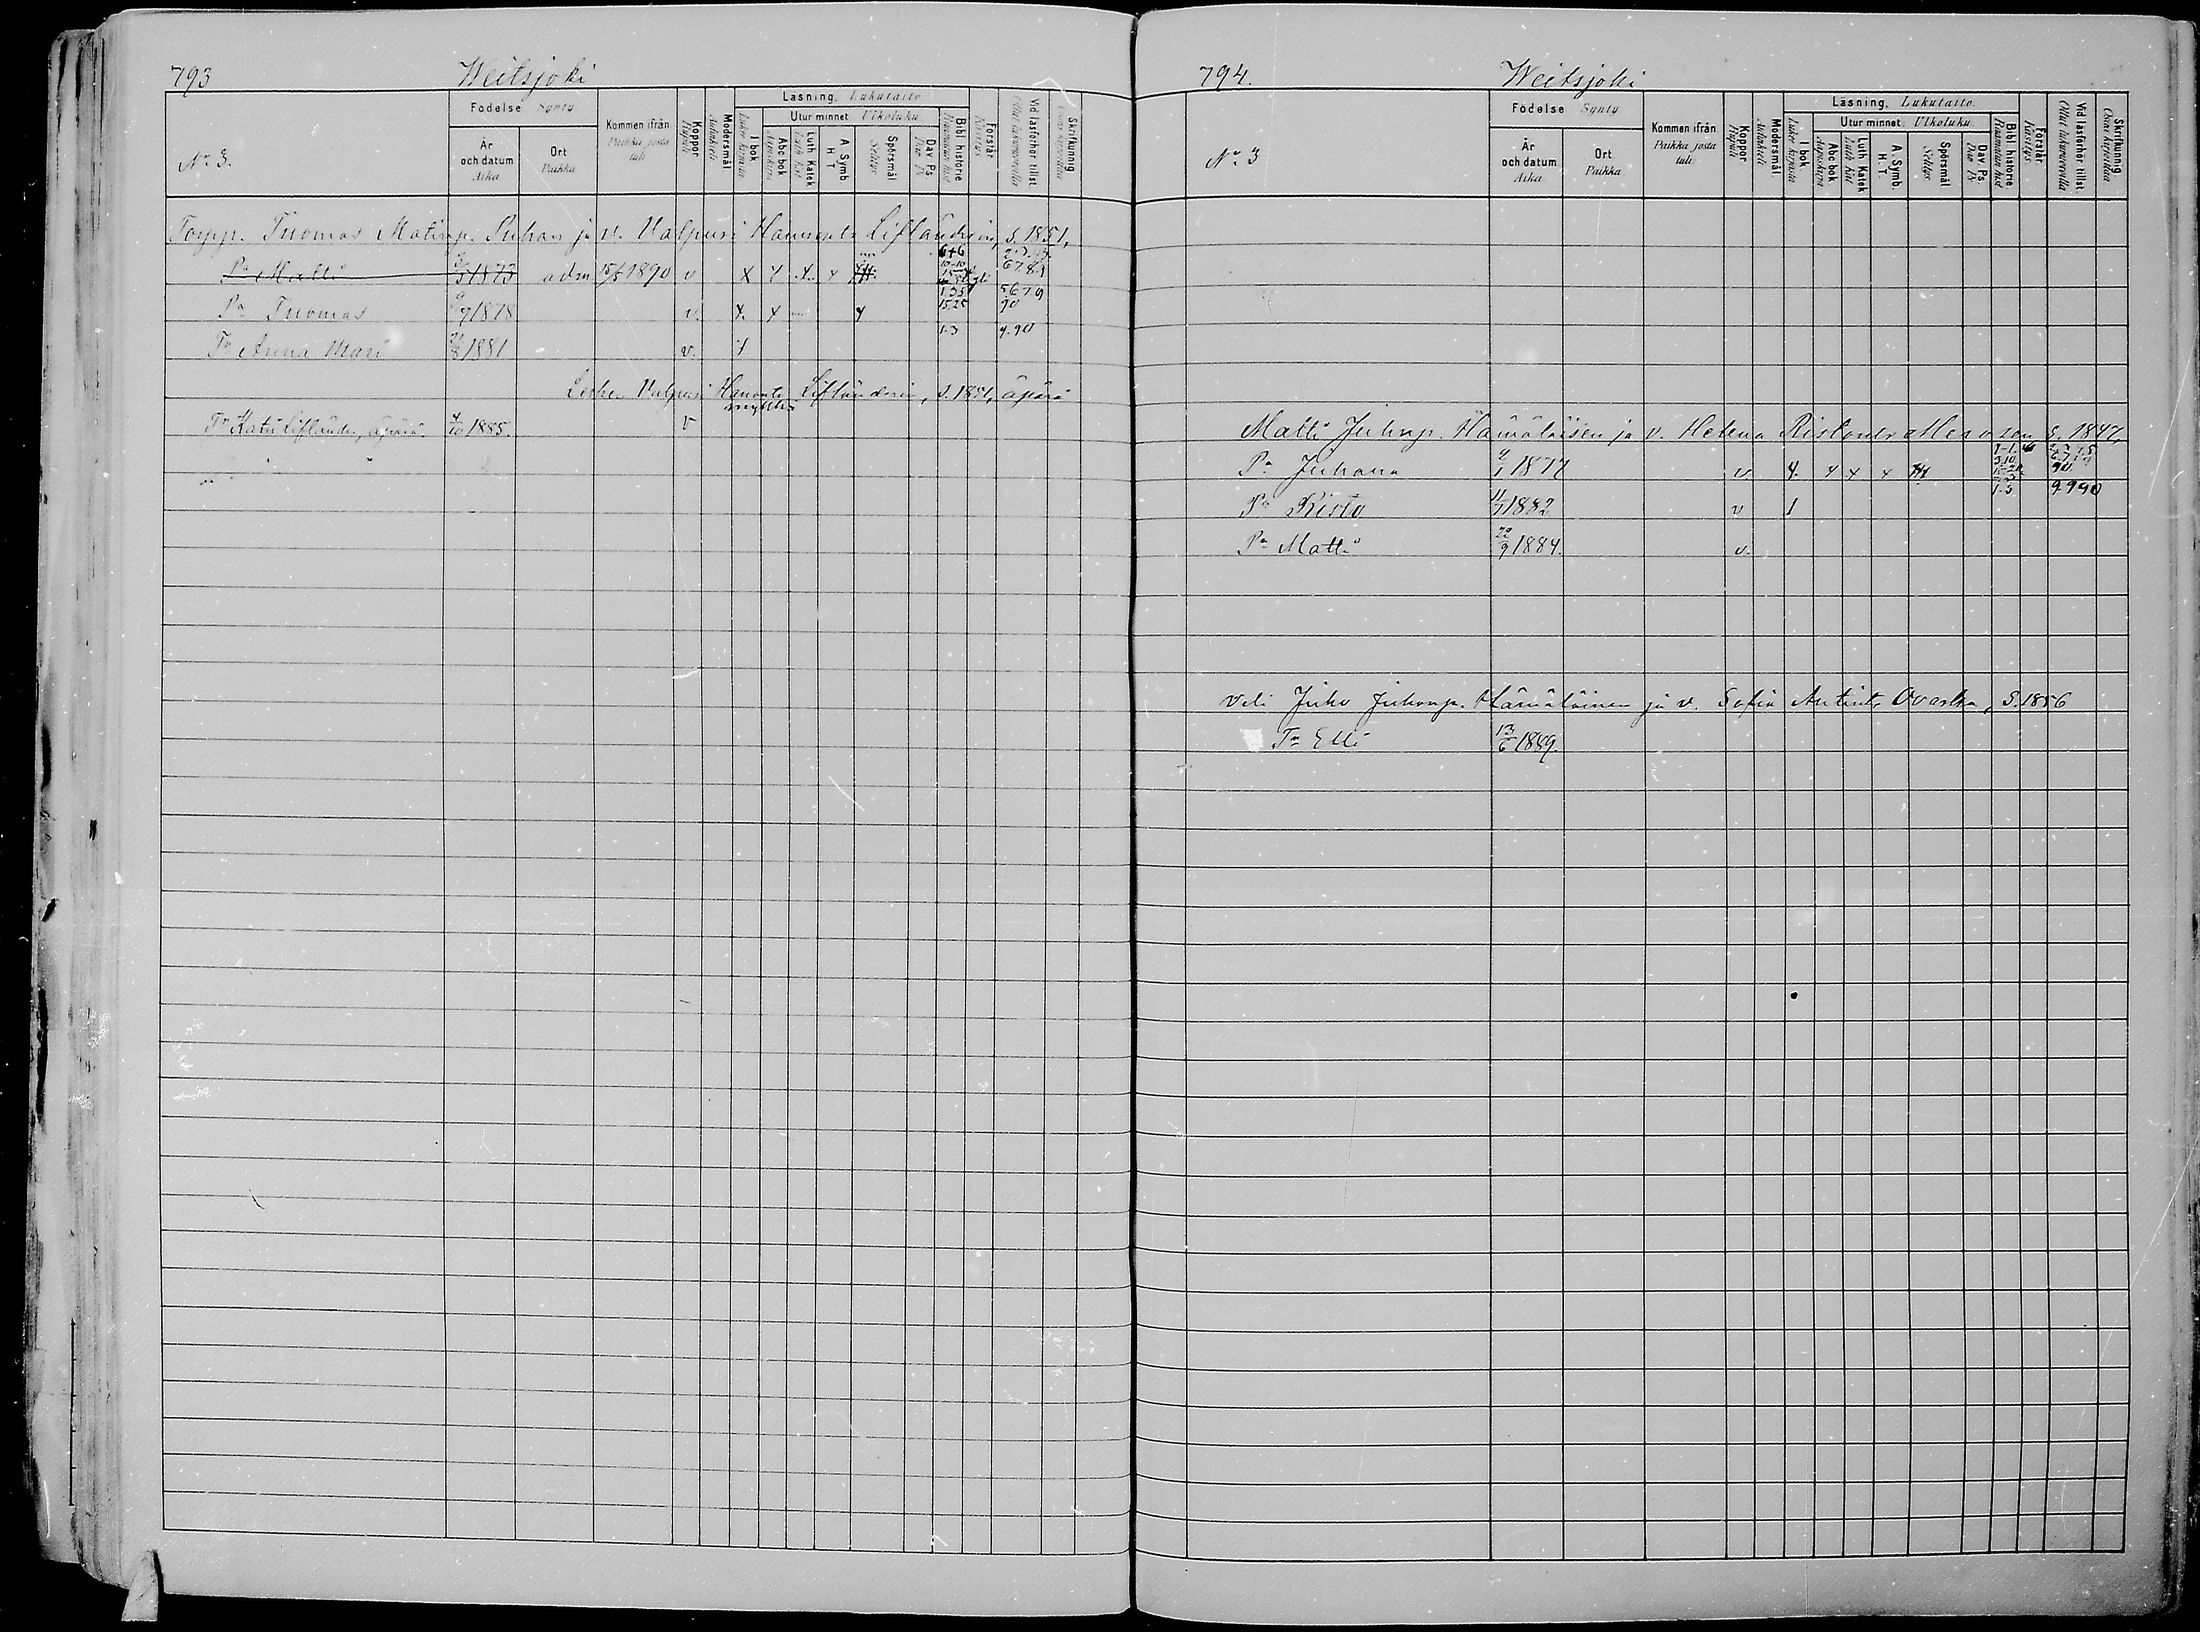 793 Weitsjoki
No 3.
Födelse Synty
År och datum Aika
Ort Paikka
Kommen ifrån Paikka josta tuli
Koppor Rupuli
Modersmål Äidinkieli
Läsning. Lukutaito
I bok
Utur minnet Ulkoluku
Abc bok
Luth Katek
A. Symb. H T
Spörsmål Selitys
Dav Ps.
Bibl. historie
Förstår Käsitys
Vid läsförhör tillst.
Skrifkunnig
Torpp. Tuomas Matinp. Puhan ja v. Valpuri Hannunt. Liflanderin, s. 1851,
Pa Matti 1873 adm 15/6 1890 v
Pa Tuomas 1878 v.
Tr Anna Mari 1881 v.
Lesken Valpuri Hanunt. Liflanderin, s. 1851, äpärä
Tr Katri Liflander, äpärä. 4/10 1885. v
794. Weitsjoki
No 3
Födelse Synty
År och datum Aika
Ort Paikka
Kommen ifrån Paikka josta tuli
Koppor Rupuli
Modersmål Äidinkieli
Läsning. Lukutaito.
I bok.
Utur minnet. Ulkoluku
Abc bok
Luth Katek
A. Symb. H. T.
Spörsmål Selitys
Dav Ps.
Bibl. historie
Förstår Käsitys
Vid läsförhör tillst.
Skrifkunnig
Matti Juhonp. Hämäläisen ja v. Helena Ristontr s. 1847,
Pa Juhana 1877 v.
Pa Risto 1882 v 1
Pa Matti 1884. v.
Veli Juho Juhonp. Hämäläinen ja v. Sofia Antintr Ovaska, s. 1856
Tr Elli 13/6 1889.